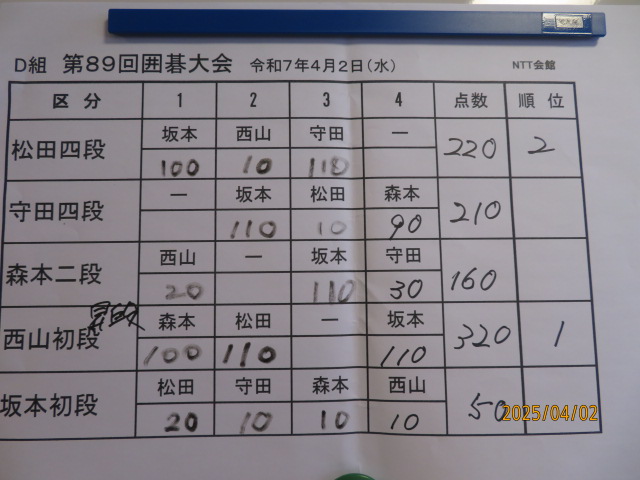 D組 第89回囲碁大会 令和7年4月2日(水) NTT会館
区分 1 2 3 4 点数 順位
松田四段 坂本 西山 守田 ー 220 2
100 10 110
守田四段 ー 坂本 松田 森本 210
110 10 90
森本二段 西山 ー 坂本 守田 160
20 110 30
西山初段 昇段 森本 松田 ー 坂本 320 1
100 110 110
坂本初段 松田 守田 森本 西山 50
20 10 10 10
2025/04/02